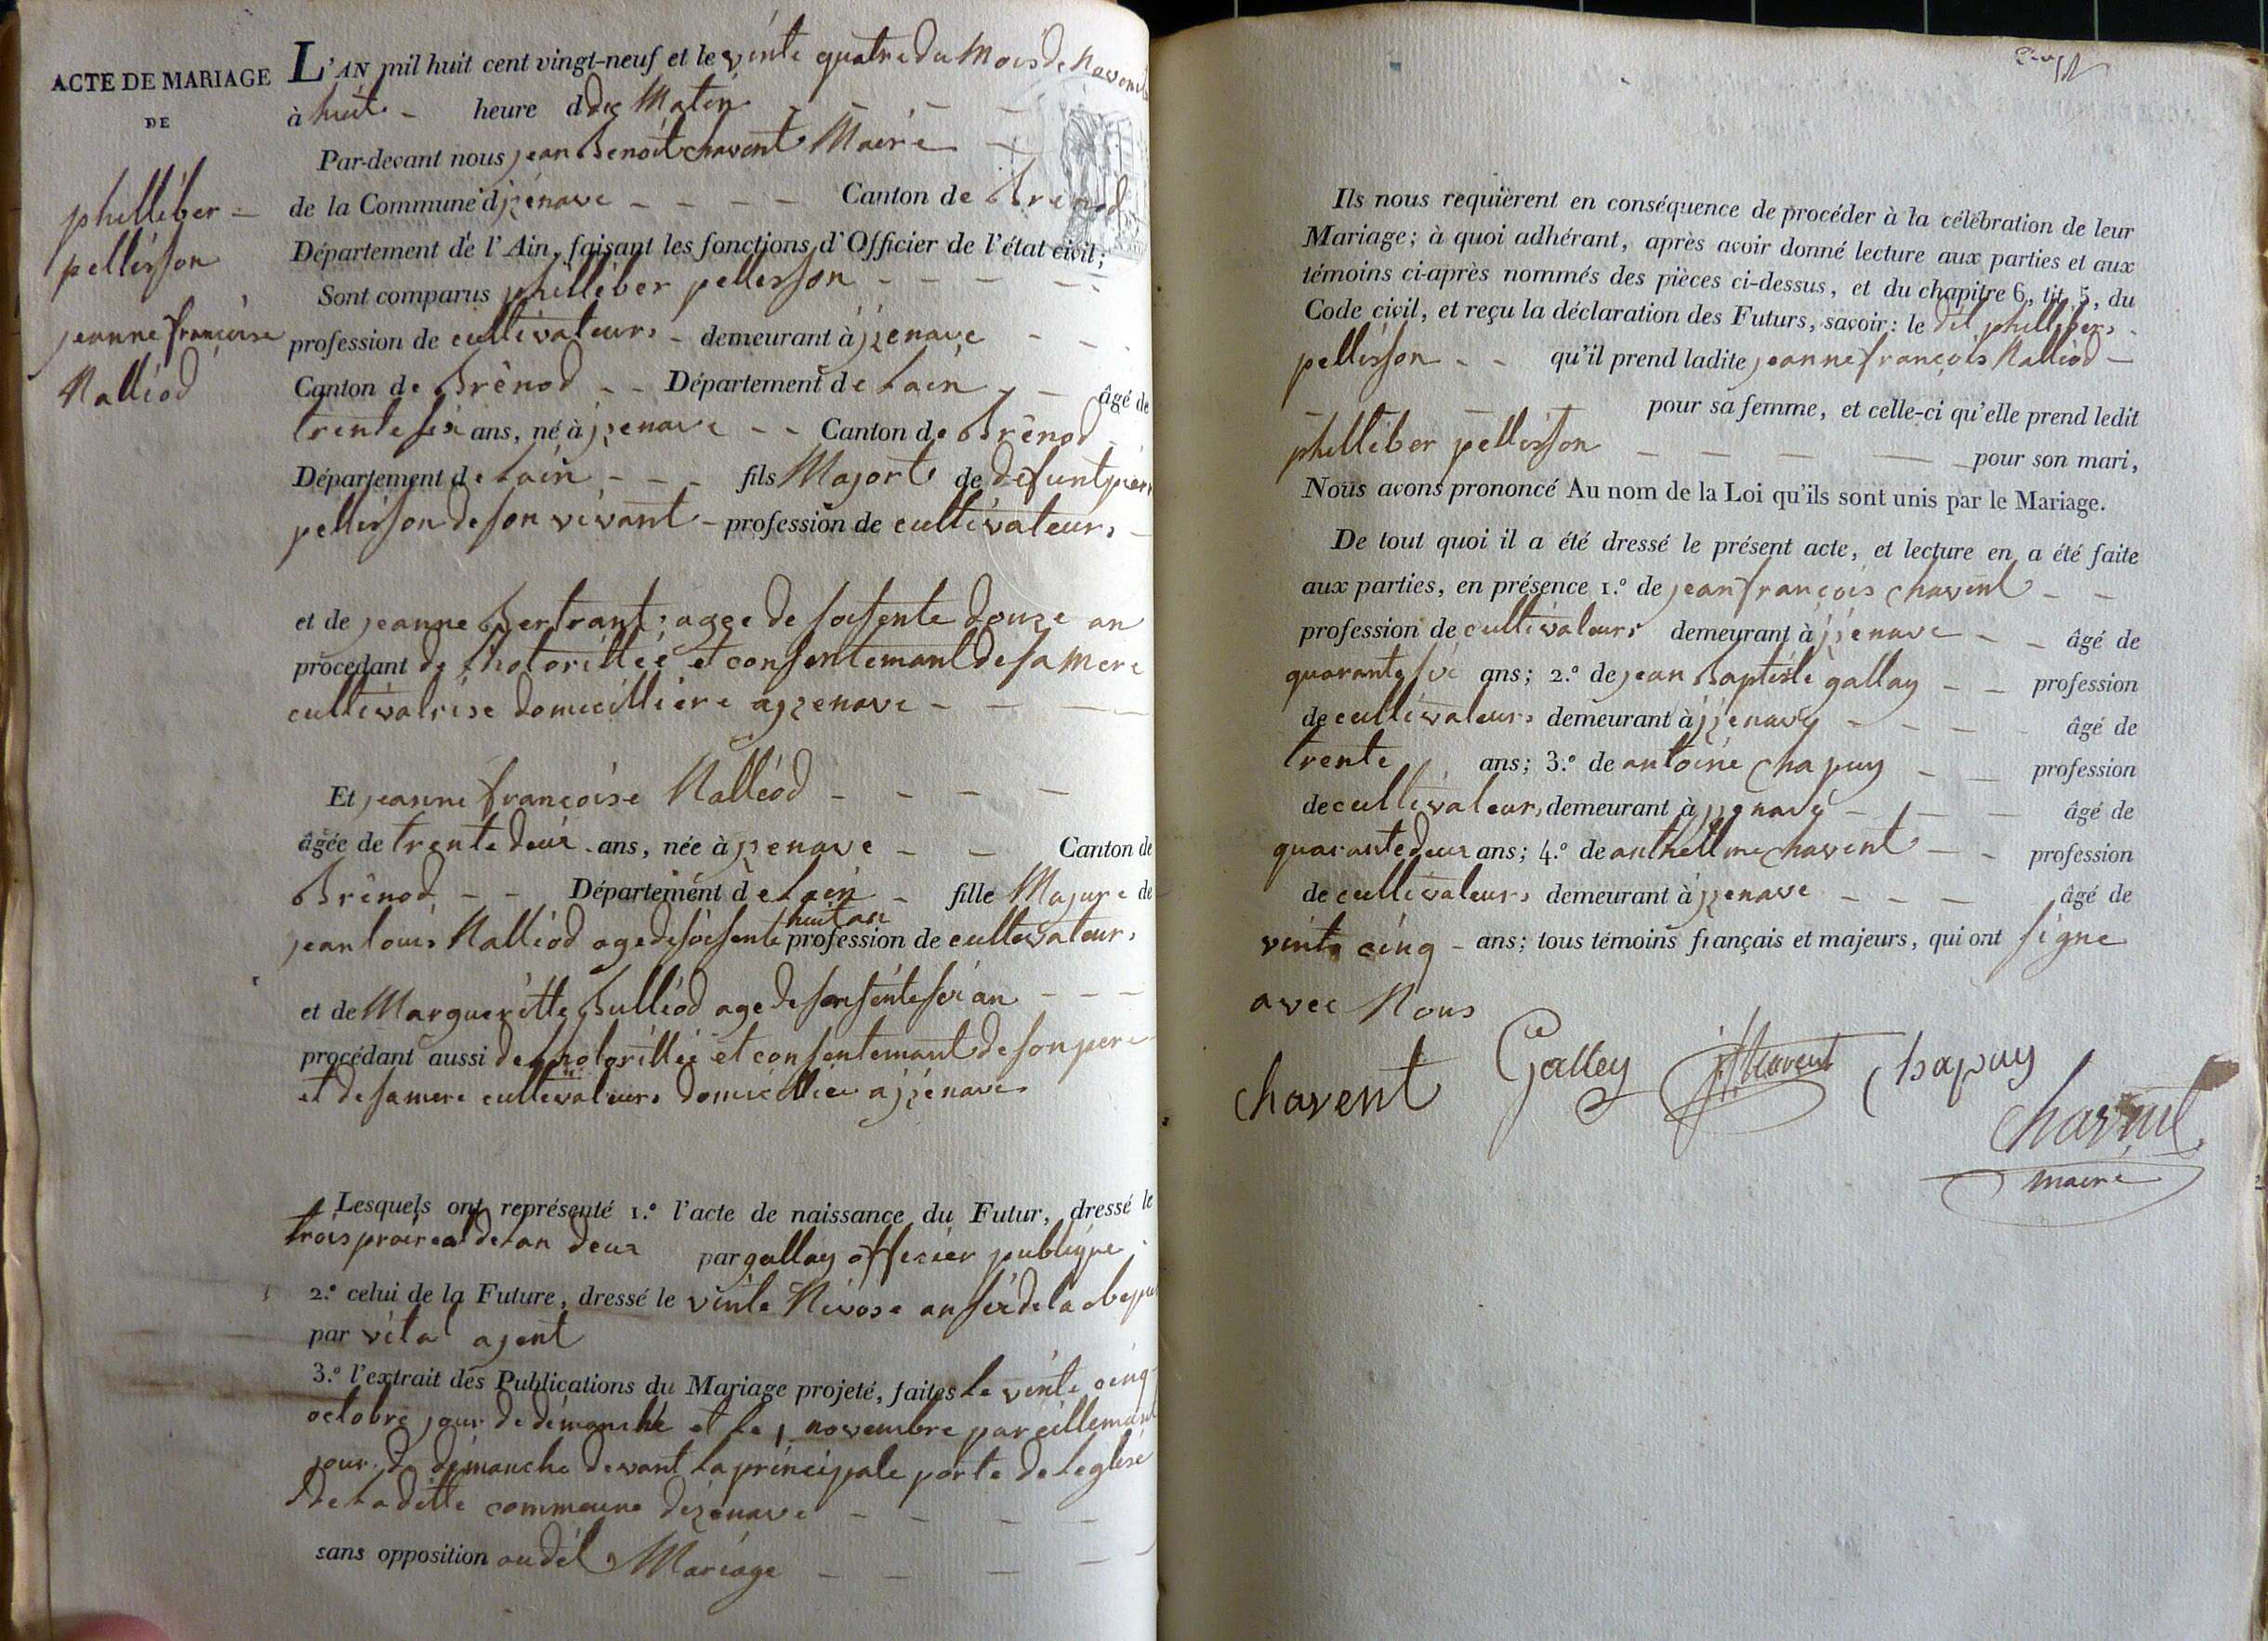 ACTE DE MARIAGE
DE
philliber
pellisson
jeanne françoise
Nalliod
L'AN mil huit cent vingt-neuf et le vinte quatre du Mois de Novembre
à huit heure d du Matin
Par-devant nous jean Benoit chavent Maire
de la Commune d jzenave Canton de Brénod
Département de l'Ain, faisant les fonctions d'Officier de l'état civil;
Sont comparus philliber pellisson
profession de cultivateurs demeurant à jzenave
Canton de Brénod Département de Lain âgé de
trente six ans, né à jzenave Canton de Brénod
Département de Lain fils Majort de defunt pierre
pellisson de son vivant profession de cultivateurs
et de jeanne Bertrant agee de soisente douze an
procédant de et consentemant de sa Mere
cultivatrise domicilliere a jzenave
Et jeanne françoise Nalliod
âgée de trente deux ans, née à jzenave Canton de
Brénod Département de Lain fille Majure de
jean louis Nalliod age de soisente huit an profession de cultivateurs
et de Margueritte Bulliod age de sonsente six an
procédant aussi de et consentemant de son pere
et de sa mere cultivateurs domicillier a jzenave
Lesquels ont représenté 1.º l'acte de naissance du Futur, dressé le
trois prairéal de lan deux par gallay officier publique
2.º celui de la Future, dressé le vinte Nivose an six de la
par vital agent
3.º l'extrait des Publications du Mariage projeté, faites le vinte cinq
octobre jour de dimanche et le 1 novembre pareillemant
jour de dimanche devant la principale porte de leglise
de la ditte commune dizenave
sans opposition audit Mariage
Ils nous requièrent en conséquence de procéder à la célébration de leur
Mariage; à quoi adhérant, après avoir donné lecture aux parties et aux
témoins ci-après nommés des pièces ci-dessus, et du chapitre 6, tit. 5, du
Code civil, et reçu la déclaration des Futurs, savoir: le dit philliber
pellisson qu'il prend ladite jeanne françois Nalliod
pour sa femme, et celle-ci qu'elle prend ledit
philliber pellisson pour son mari,
Nous avons prononcé Au nom de la Loi qu'ils sont unis par le Mariage.
De tout quoi il a été dressé le présent acte, et lecture en a été faite
aux parties, en présence 1.º de jean françois chavent
profession de cultivateurs demeurant à jzenave âgé de
quarante six ans; 2.º de jean Baptiste gallay profession
de cultivateurs demeurant à jzenave âgé de
trente ans; 3.º de antoine chapuy profession
de cultivateurs demeurant à jzenave âgé de
quarante deux ans; 4.º de anthellme chavent profession
de cultivateurs demeurant à jzenave âgé de
vinte cinq ans; tous témoins français et majeurs, qui ont signe
avec Nous
chavent Galley jf chavent chapuy
chavent
maire